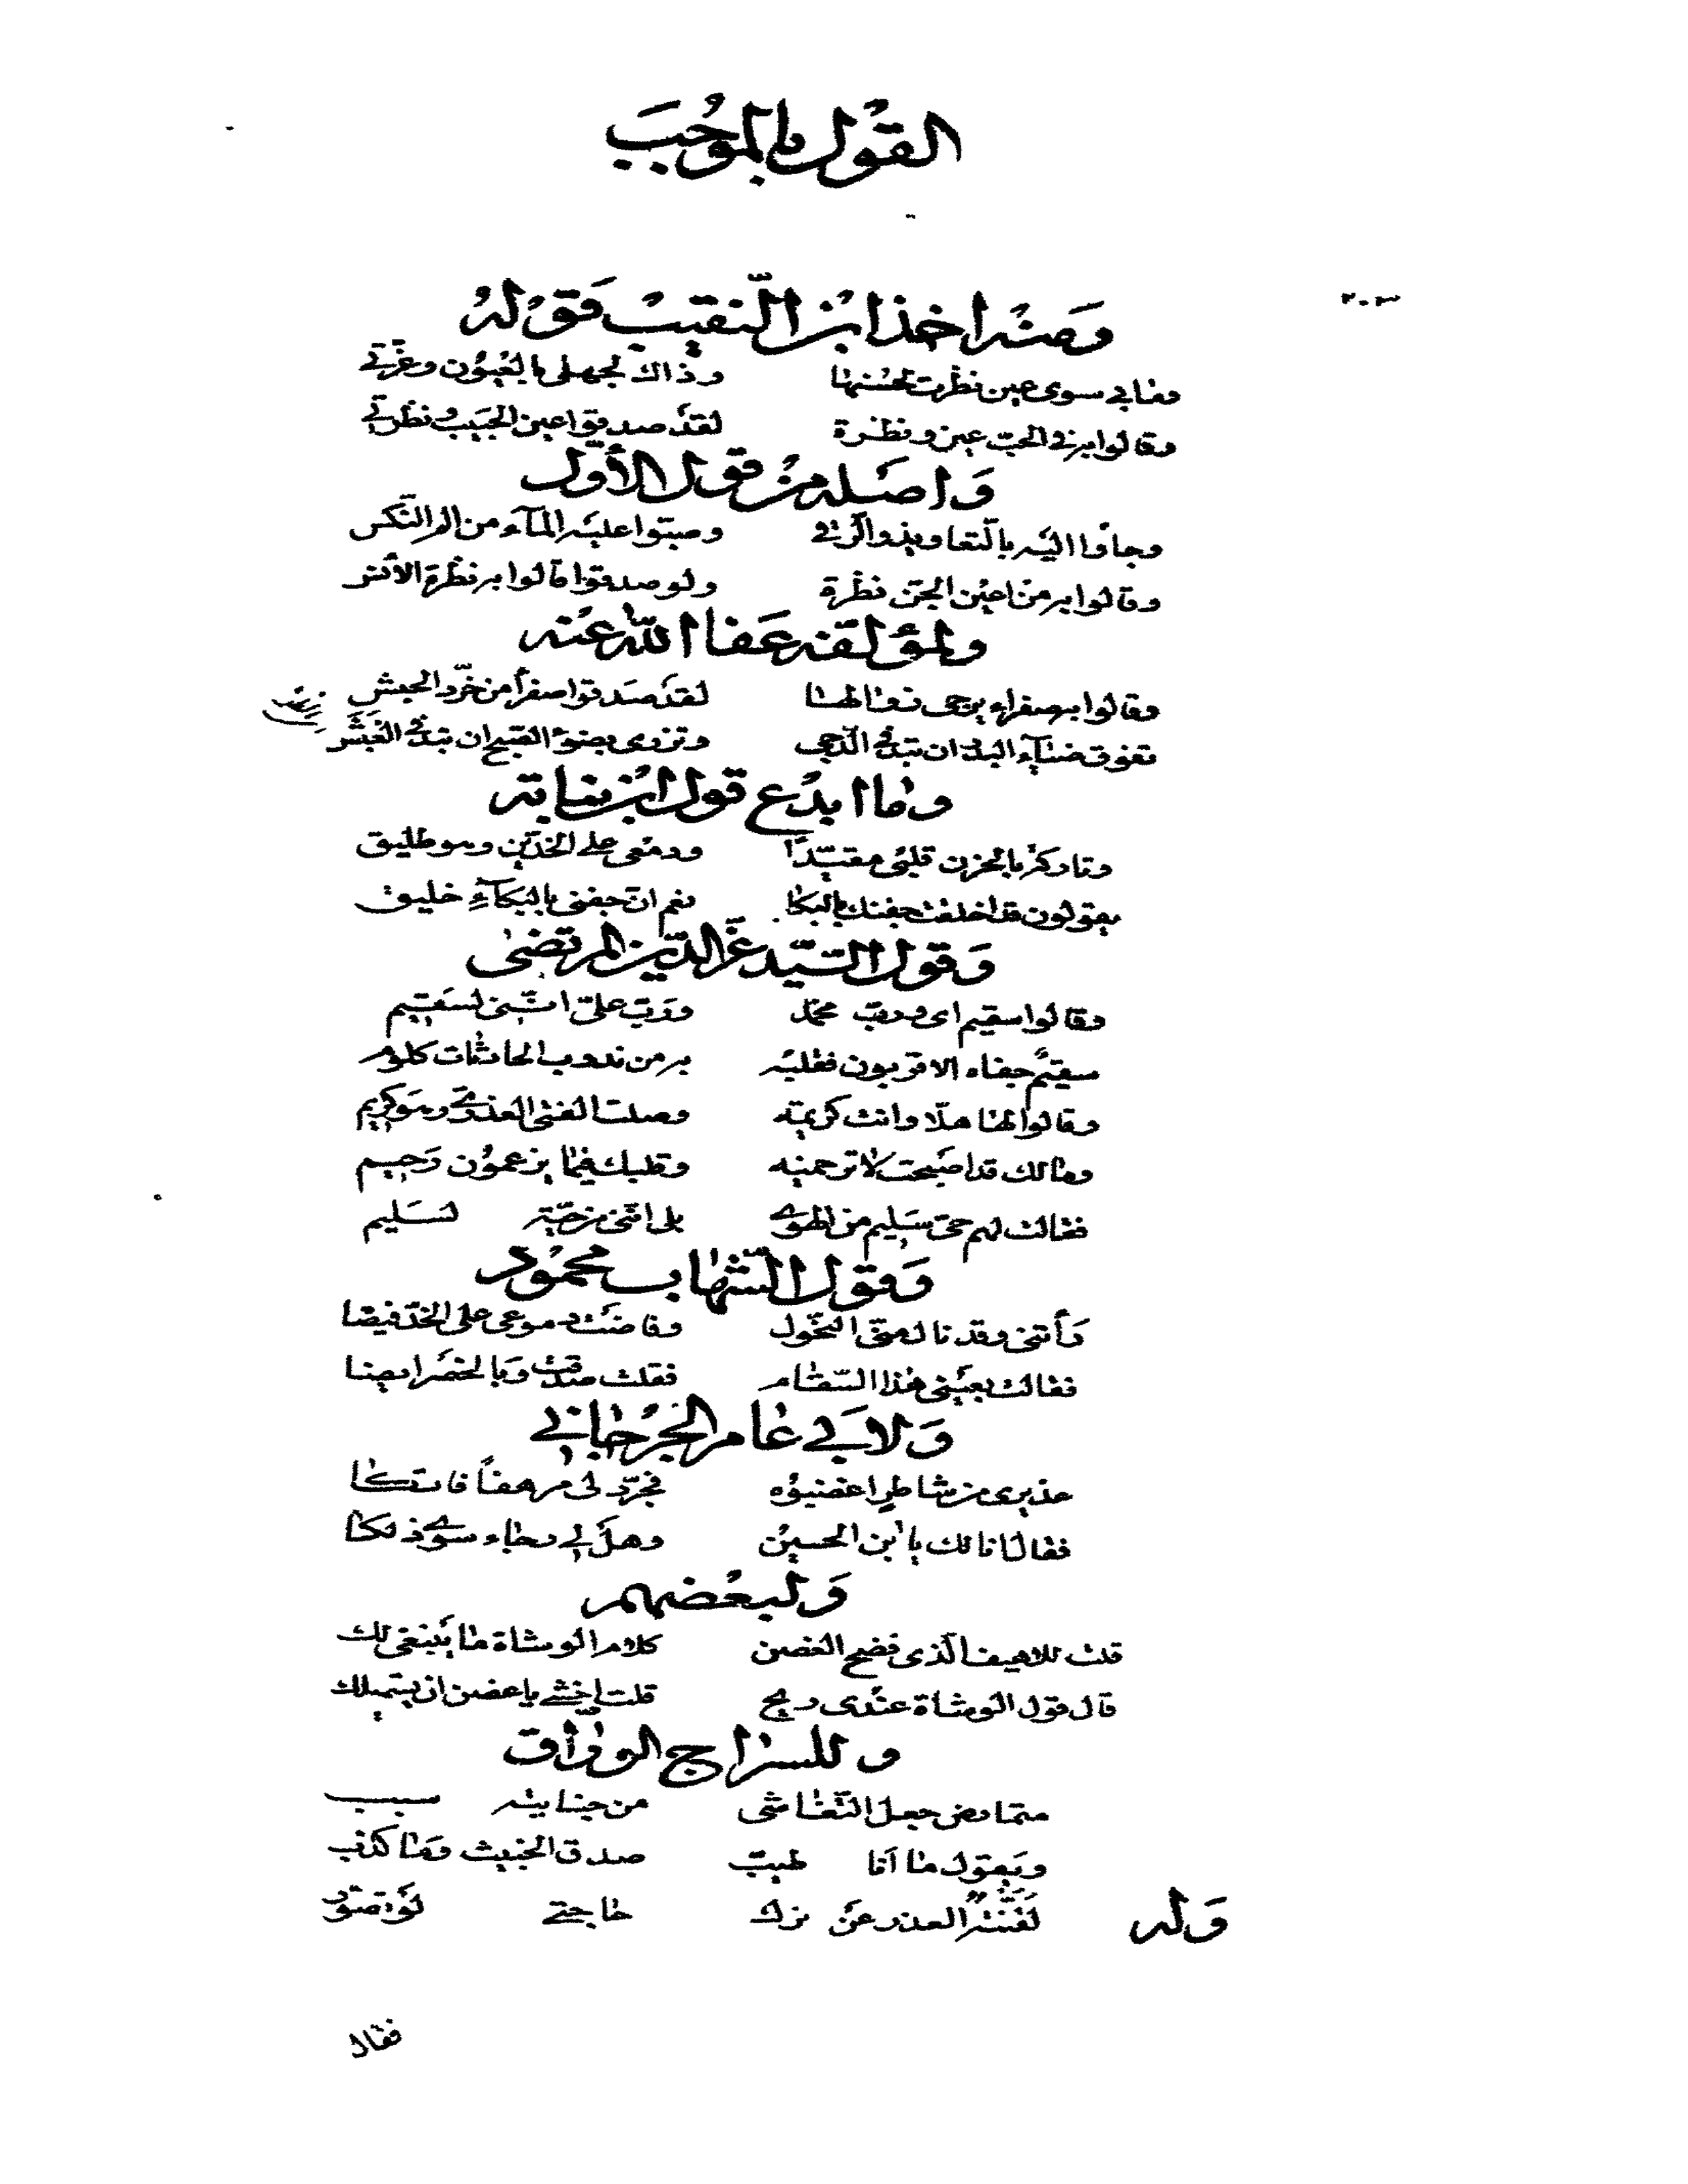 القول بالموجب
٢٠٣
ومنه اخذ ابن النقيب فقوله
وما بي سوى عين نظرت لحسنها وذاك لجهلي بالعيون وغرتي
وقالوا به في الحب عين ونظرة لقد صدقوا عين الحبيب ونظرتي
واصله من قول الأول
وجاؤا اليه بالتعاويذ والرقى وصبوا عليه المآء من الم النكس
وقالوا به من اعين الجن نظرة ولو صدقوا قالوا به نظرة الأنس
ولمؤلفه عفا الله عنه
وقالوا به صفراء يرجى زوالها لقد صدقوا صفرا من خرد الحبش
تفوق ضيآء البدر ان تبد في الدجى وتزرى بضوء الصبح ان تبد في الغبش
وما ابدع قول ابن نباته
وقاد كر بالحزن قلبى مقيدا ودمعى على الخدين وهو طليق
يقولون قد اخلقت جفنك بالبكا نعم ان جفنى بالبكآء خليق
وقول السيد عز الدين المرتضى
وقالوا سقيم اى ورب محمد ورب على اننى لسقيم
سقيم جفاه الاقربون فقلبه به من ندوب الحادثات كلوم
وقالوا لها هلا وانت كريمة وصلت الفتى العذرى وهو كريم
ومالك قد اصبحت لا ترحمينه وقلبك فيما يزعمون رحيم
فقالت لهم حتى سليم من الهوى بلى اننى من حبه لسليم
وقول الشهاب محمود
رأتنى وقد نال منى النحول وفاضت دموعى على الخد فيضا
فقالت بعينى هذا السقام فقلت صدقت وبالخصر ايضا
ولابي عامر الجرجاني
عذيرى من شاطر اغضبوه فجرد لى مرهفا فاتكا
فقال انا لك يا ابن الحسين وهل لي رجاء سوى ذلكا
ولبعضهم
قلت للاهيف الذى فضح الغصن كلام الوشاة ما ينبغى لك
قال قول الوشاة عندى ريح قلت اخشى يا غصن ان يستميلك
وللسراج الوراق
متمارض جعل التغاشى من جنايته سبب
ويقول ما انا طيب صدق الخبيث وما كذب
وله العذر عن ترك حاجتى
فقال